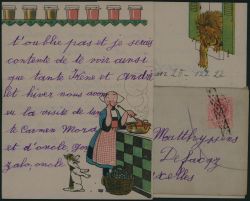 t'oublie pas et je serais
contente de te voir ainsi
que tante Irène et André
cet hiver nous avons
eu la visite de tan
te Carmen Mora
et d'oncle Gon
zalo, oncle
25-12-22
Matthyssens
De Jacqz
xelles